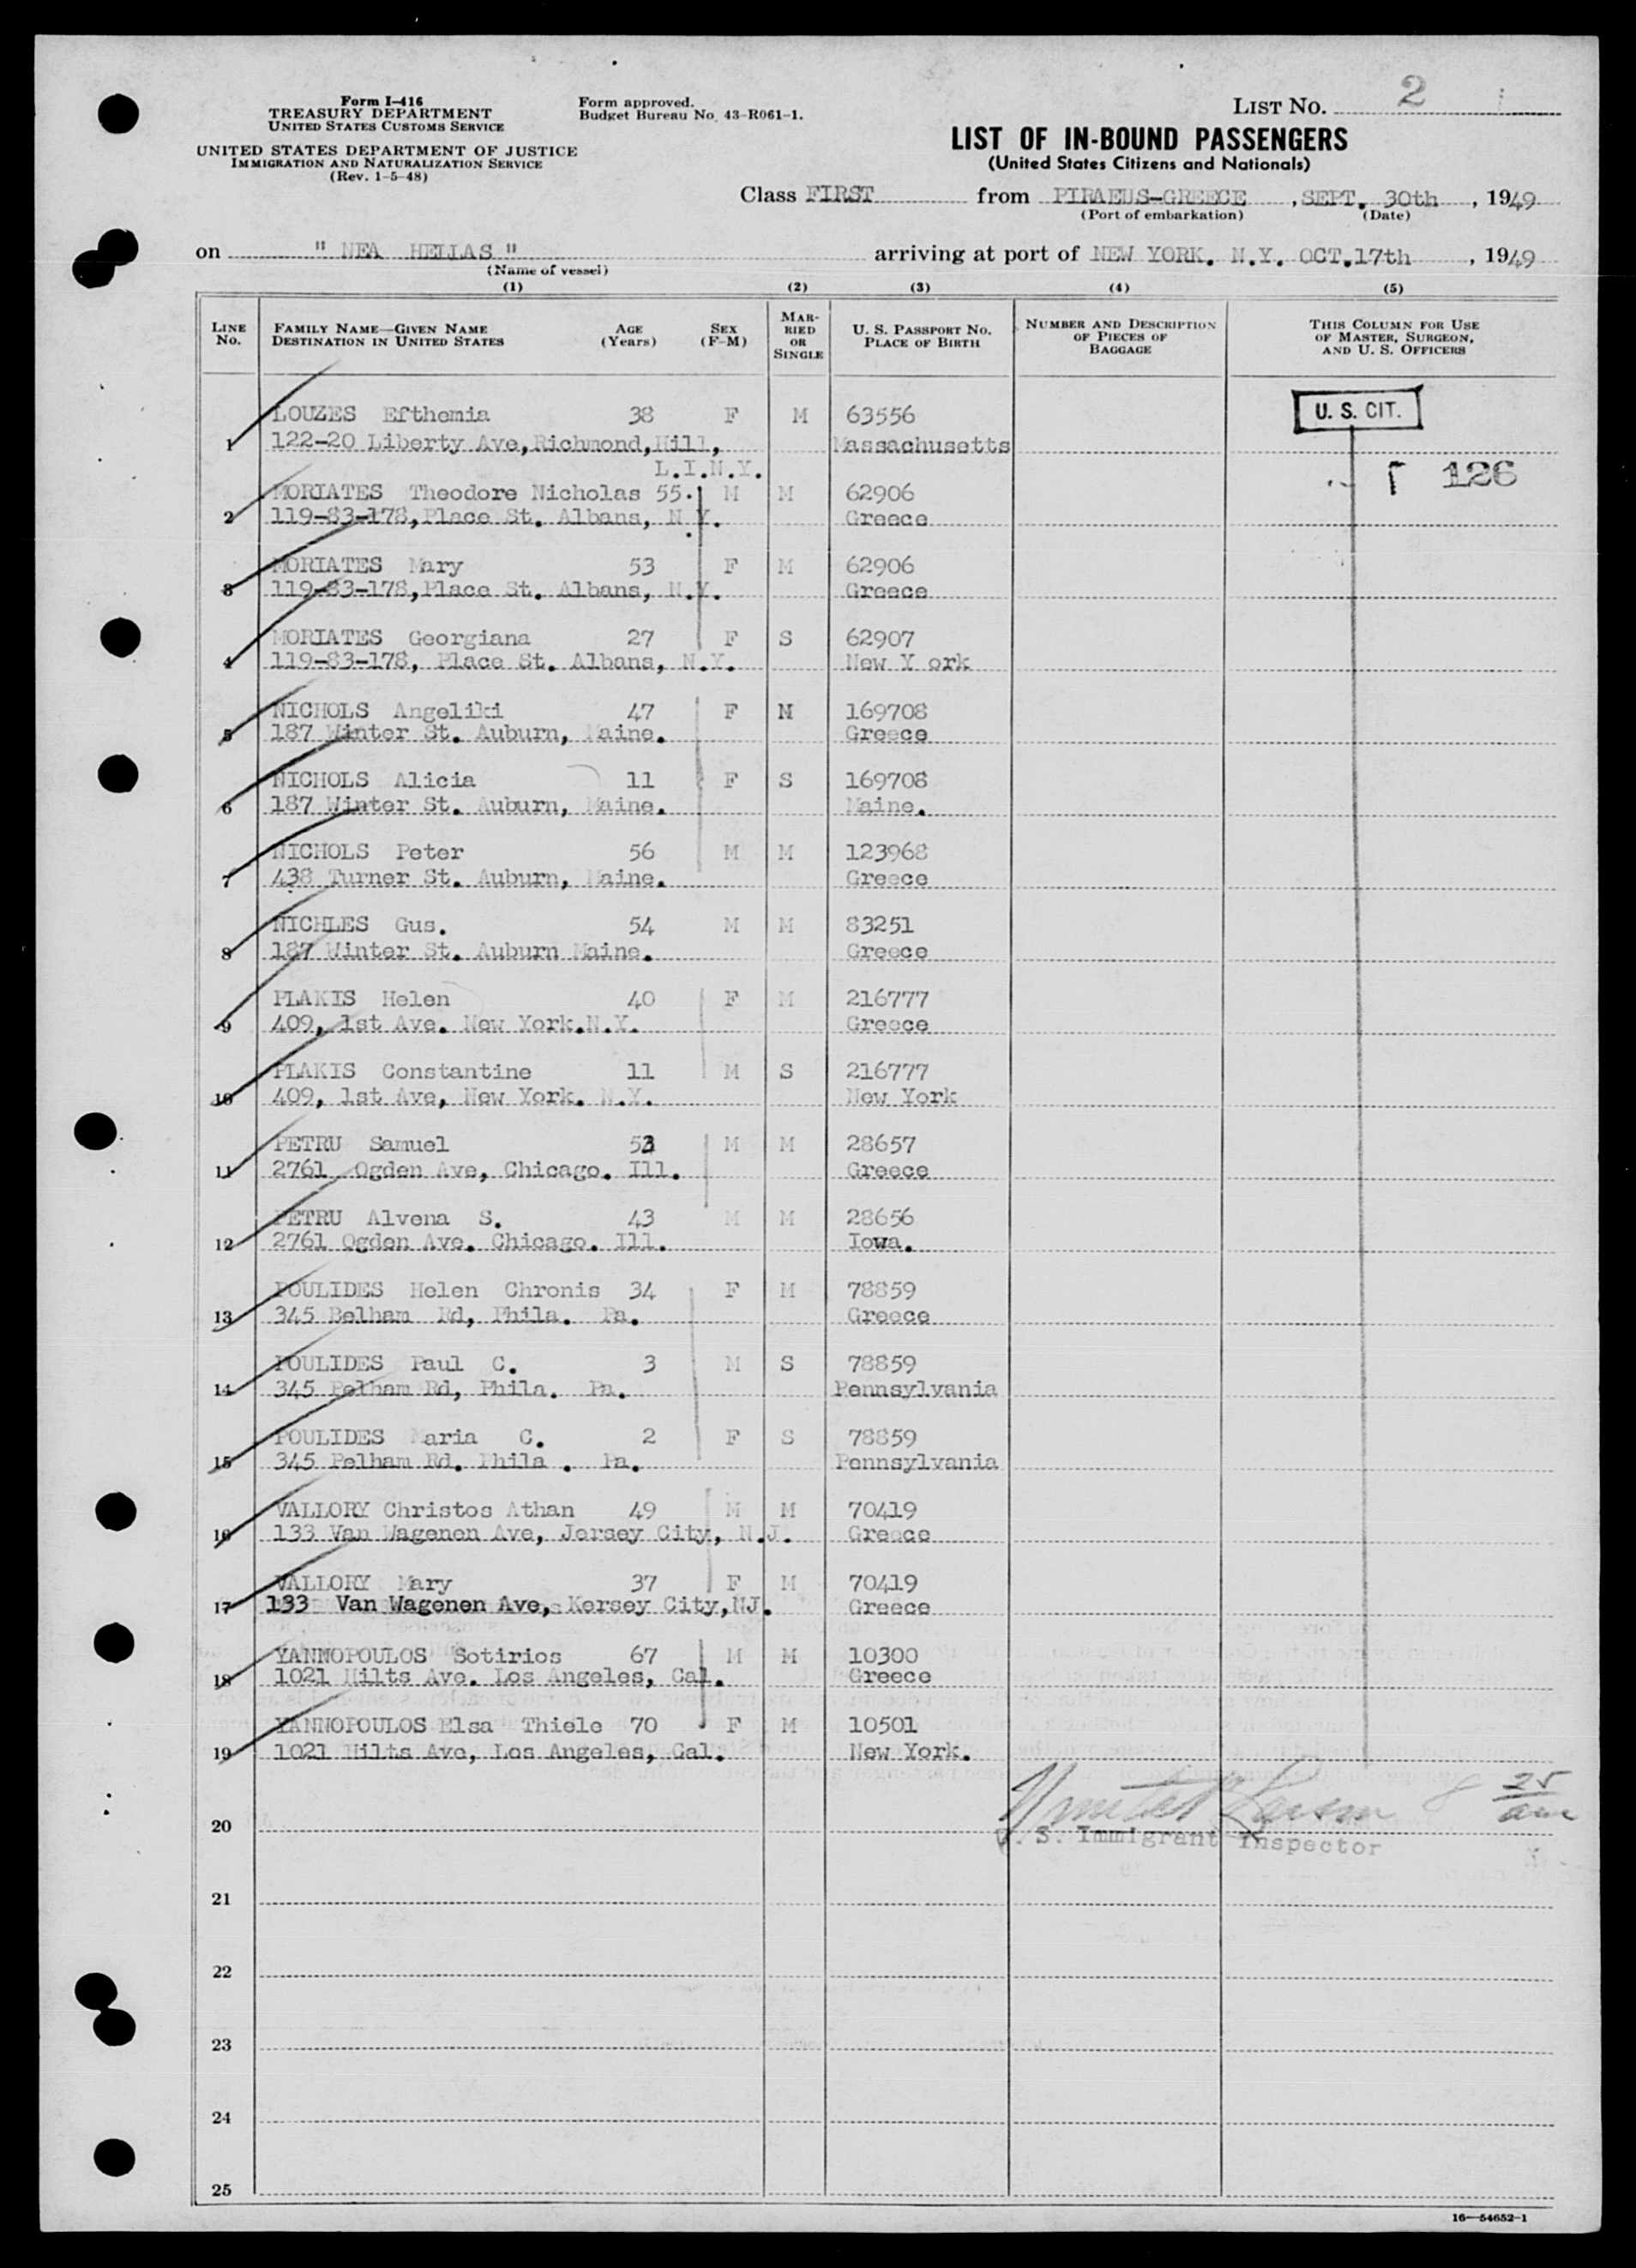 Form I-416
TREASURY DEPARTMENT
UNITED STATES CUSTOMS SERVICE
UNITED STATES DEPARTMENT OF JUSTICE
IMMIGRATION AND NATURALIZATION SERVICE
(Rev. 1-5-48)
Form approved.
Budget Bureau No. 43-R061-1.
LIST NO. 2
LIST OF IN-BOUND PASSENGERS
(United States Citizens and Nationals)
Class FIRST from PIRAEUS-GREECE, SEPT. 30th, 1949
(Port of embarkation) (Date)
on " NEA HELLAS " arriving at port of NEW YORK. N.Y. OCT.17th, 1949
(Name of vessel)
(1) (2) (3) (4) (5)
LINE NO. FAMILY NAME—GIVEN NAME DESTINATION IN UNITED STATES AGE (Years) SEX (F-M) MARRIED OR SINGLE U. S. PASSPORT NO. PLACE OF BIRTH NUMBER AND DESCRIPTION OF PIECES OF BAGGAGE THIS COLUMN FOR USE OF MASTER, SURGEON, AND U. S. OFFICERS
LOUZES Efthemia 38 F M 63556 U. S. CIT.
1 122-20 Liberty Ave, Richmond, Hill, Massachusetts
L.I.N.Y. 126
MORIATES Theodore Nicholas 55. M M 62906
2 119-83-178, Place St. Albans, N.Y. Greece
MORIATES Mary 53 F M 62906
3 119-83-178, Place St. Albans, N.Y. Greece
MORIATES Georgiana 27 F S 62907
4 119-83-178, Place St. Albans, N.Y. New Y ork
NICHOLS Angeliki 47 F M 169708
5 187 Winter St. Auburn, Maine. Greece
NICHOLS Alicia 11 F S 169708
6 187 Winter St. Auburn, Maine. Maine.
NICHOLS Peter 56 M M 123968
7 438 Turner St. Auburn, Maine. Greece
NICHLES Gus. 54 M M 83251
8 187 Winter St. Auburn Maine. Greece
PLAKIS Helen 40 F M 216777
9 409, 1st Ave. New York.N.Y. Greece
PLAKIS Constantine 11 M S 216777
10 409, 1st Ave, New York. N.Y. New York
PETRU Samuel 53 M M 28657
11 2761 Ogden Ave, Chicago. Ill. Greece
PETRU Alvena S. 43 M M 28656
12 2761 Ogden Ave. Chicago. Ill. Iowa.
POULIDES Helen Chronis 34 F M 78859
13 345 Belham Rd, Phila. Pa. Greece
POULIDES Paul C. 3 M S 78859
14 345 Pelham Rd, Phila. Pa. Pennsylvania
POULIDES Maria C. 2 F S 78859
15 345 Pelham Rd. Phila . Pa. Pennsylvania
VALLORY Christos Athan 49 M M 70419
16 133 Van Wagenen Ave, Jersey City, N.J. Greece
VALLORY Mary 37 F M 70419
17 133 Van Wagenen Ave, Kersey City, NJ. Greece
YANNOPOULOS Sotirios 67 M M 10300
18 1021 Hilts Ave. Los Angeles, Cal. Greece
YANNOPOULOS Elsa Thiele 70 F M 10501
19 1021 Hilts Ave, Los Angeles, Cal. New York.
25
am
20 U. S. Immigrant Inspector
21
22
23
24
25
16—54652-1